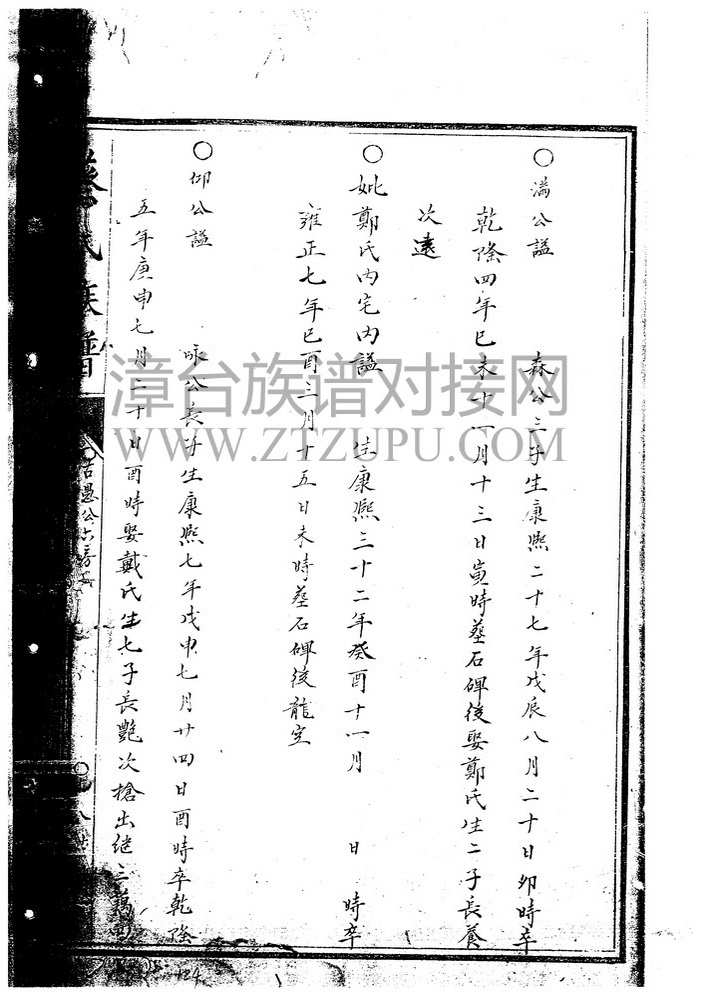 ○满公諡 森公三子生康熙二十七年戊辰八月二十日卯時卒
乾隆四年巳未十一月十三日寅時塟石碑後娶鄭氏生二子長養
次遠
○妣鄭氏內宅內諡 生康熙三十二年癸酉十一月 日 時卒
雍正七年巳酉三月十五日未時塟石碑後龍空
○仰公諡 咏公長子生康熙七年戊申七月廿四日酉時卒乾隆
五年庚申七月二十日酉時娶戴氏生七子長艷次槍出继三
氏族譜
○古愚公六房
漳台族谱对接网
WWW.ZTZUPU.COM
124